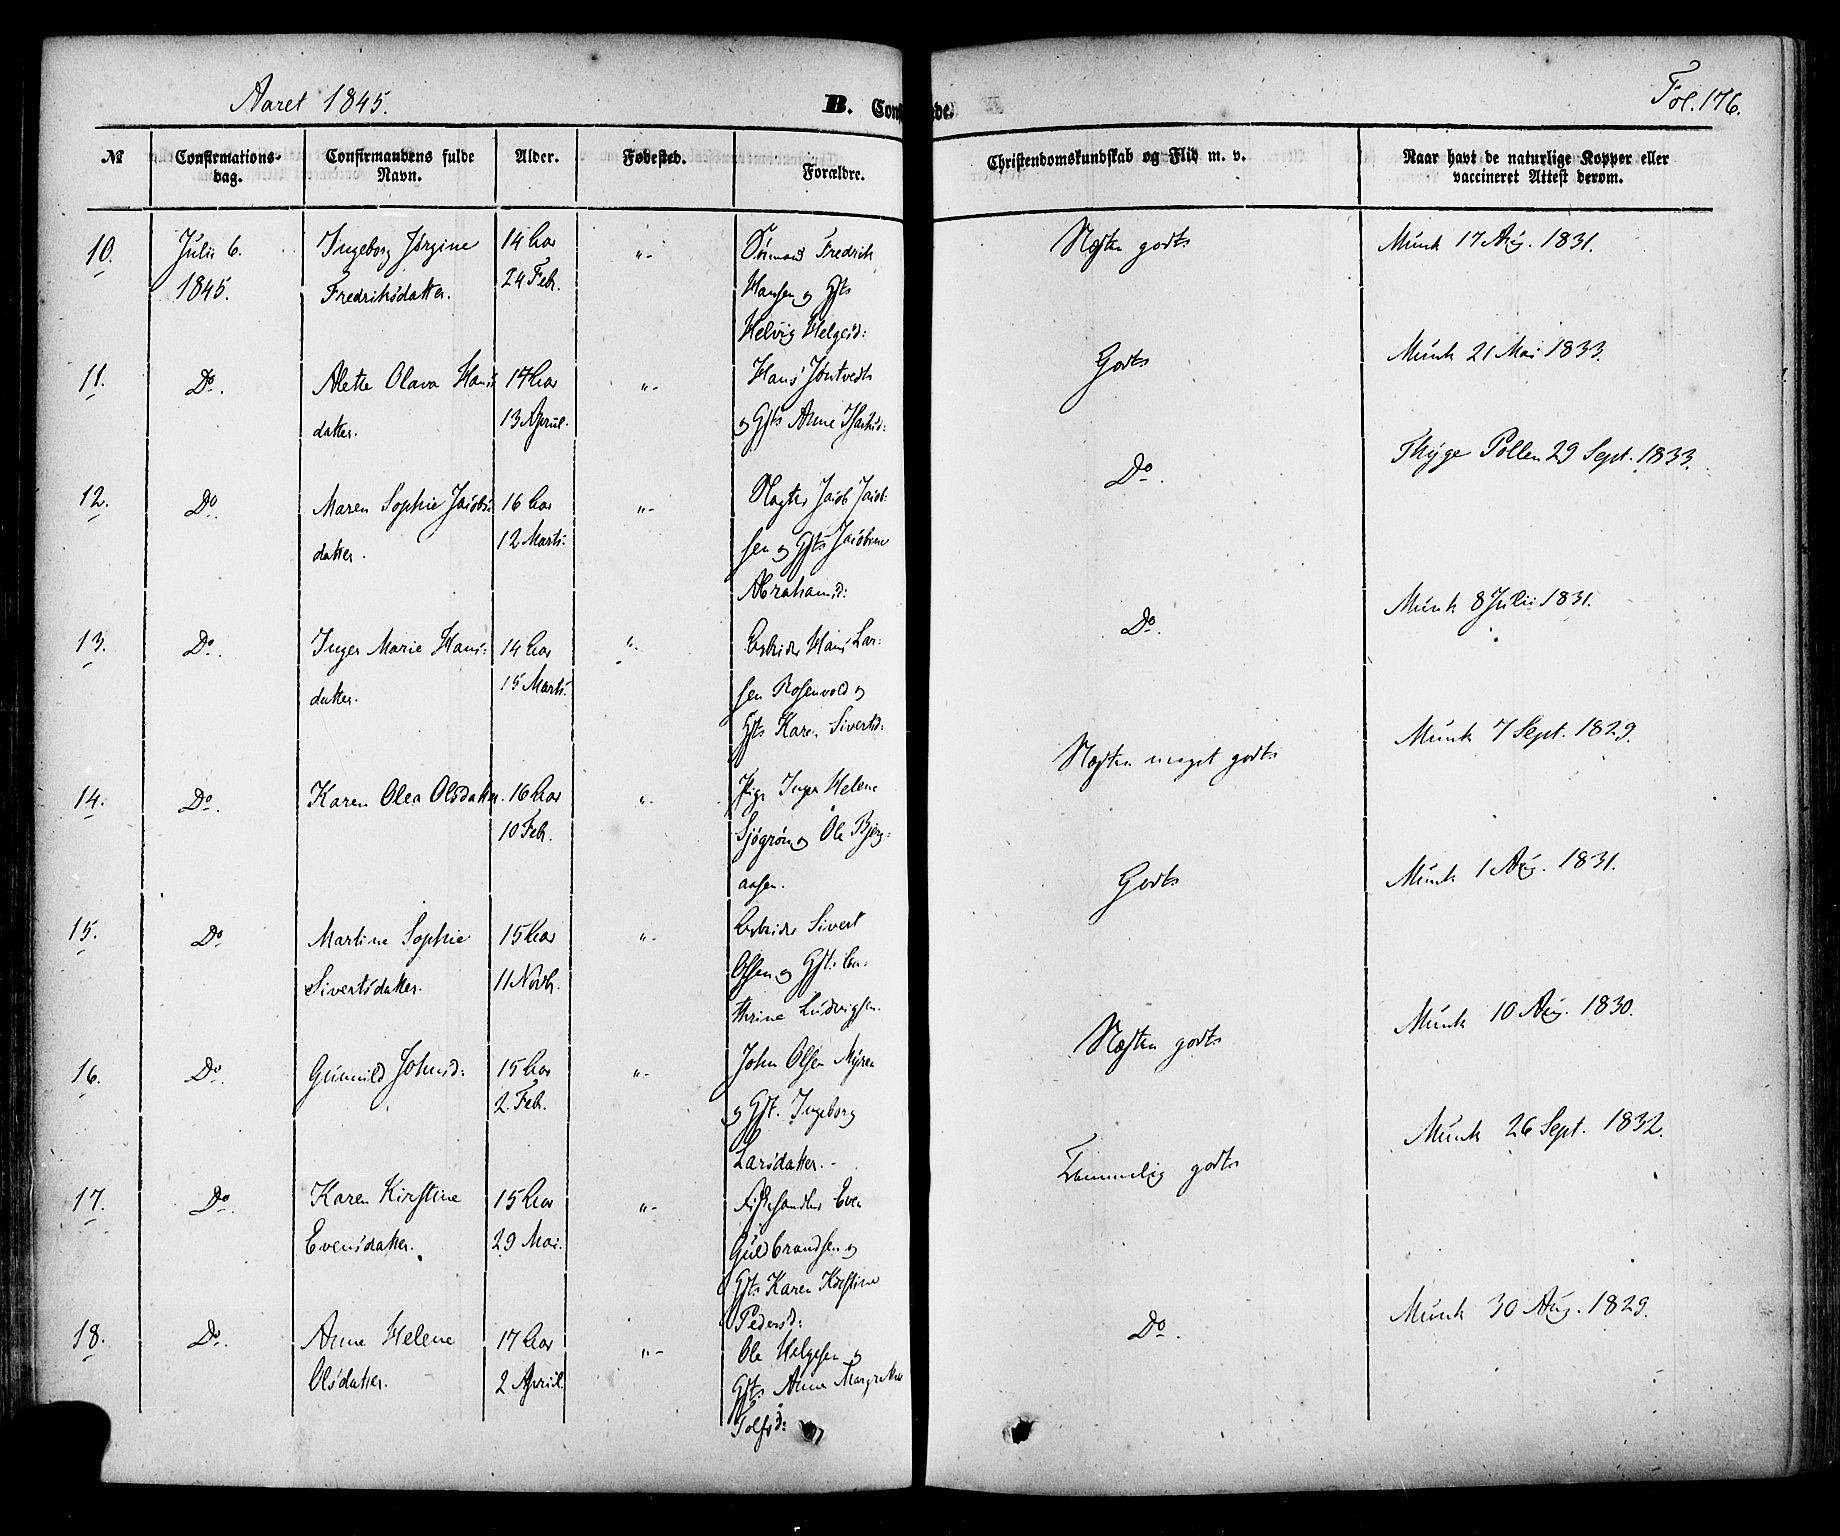 Aaret 1845.
B. Conf de.
Fol. 176.
№
Confirmations-
dag.
Confirmandens fulde
Navn.
Alder.
Fødested.
Forældre.
Christendomskundskab og Flid m. v.
Naar havt de naturlige Kopper eller
vaccineret Attest derom.
10.
Julii 6.
1845.
Ingeborg Jørgine
Fredriksdatter.
14 Aar
24 Febr.
"-
Sømand Fredrik
Hansen og Gjts
Helvig Helgesd:
Næsten godts
Munk 17 Aug. 1831.
11.
Do.
Alette Olava Hans
datter.
17 Aar
13 April.
"-
Hans Jøntvedt
og Gjts Anne
Godts
Munk 21 Mai 1833.
12.
Do.
Maren Sophie Jacobs:
datter.
16 Aar
12 Marts.
"-
Jacob Jacob-
sen og Gjts Jacobine
Abrahamsd:
Do.
Thyge Pollen 29 Sept. 1833.
13.
Do.
Inger Marie Hans:
datter.
14 Aar
15 Marts.
"-
Arbeider Hans Lar-
sen Rosenvold og
Gjts Karen Sivertsd:
Do.
Munk 8 Julii 1831.
14.
Do.
Karen Olea Olsdatter.
16 Aar
10 Febr.
"-
Pige Inger Helene
Sjøgrøn og Ole Bjerg-
aasen.
Næsten meget godts
Munk 7 Sept. 1829.
15.
Do
Martine Sophie
Sivertsdatter.
15 Aar
11 Novbr.
"-
Arbeider Sivert
Olsen og Gjts Ca-
thrine Ludvigsen.
Godts
Munk 1 Aug. 1831.
16.
Do.
Gunnild Johnsd:
15 Aar
2. Febr.
"-
John Olsen Myren
og Gjt. Ingeborg
Larsdatter. -
Næsten godts
Munk 10 Aug. 1830.
17.
Do.
Karen Kirstine
Evensdatter.
15 Aar
29 Mai.
"-
Fiskehandler Even
Guldbrandsen og
Gjts Karen Kirstine
Pedersd:
Temmelig godts
Munk 26 Sept. 1832.
18.
Do.
Anne Helene
Olsdatter.
17 Aar
2 April.
"-
Ole Helgesen og
Gjts Anne Margrethe
Tolfsd:
Do.
Munk 30 Aug. 1829.